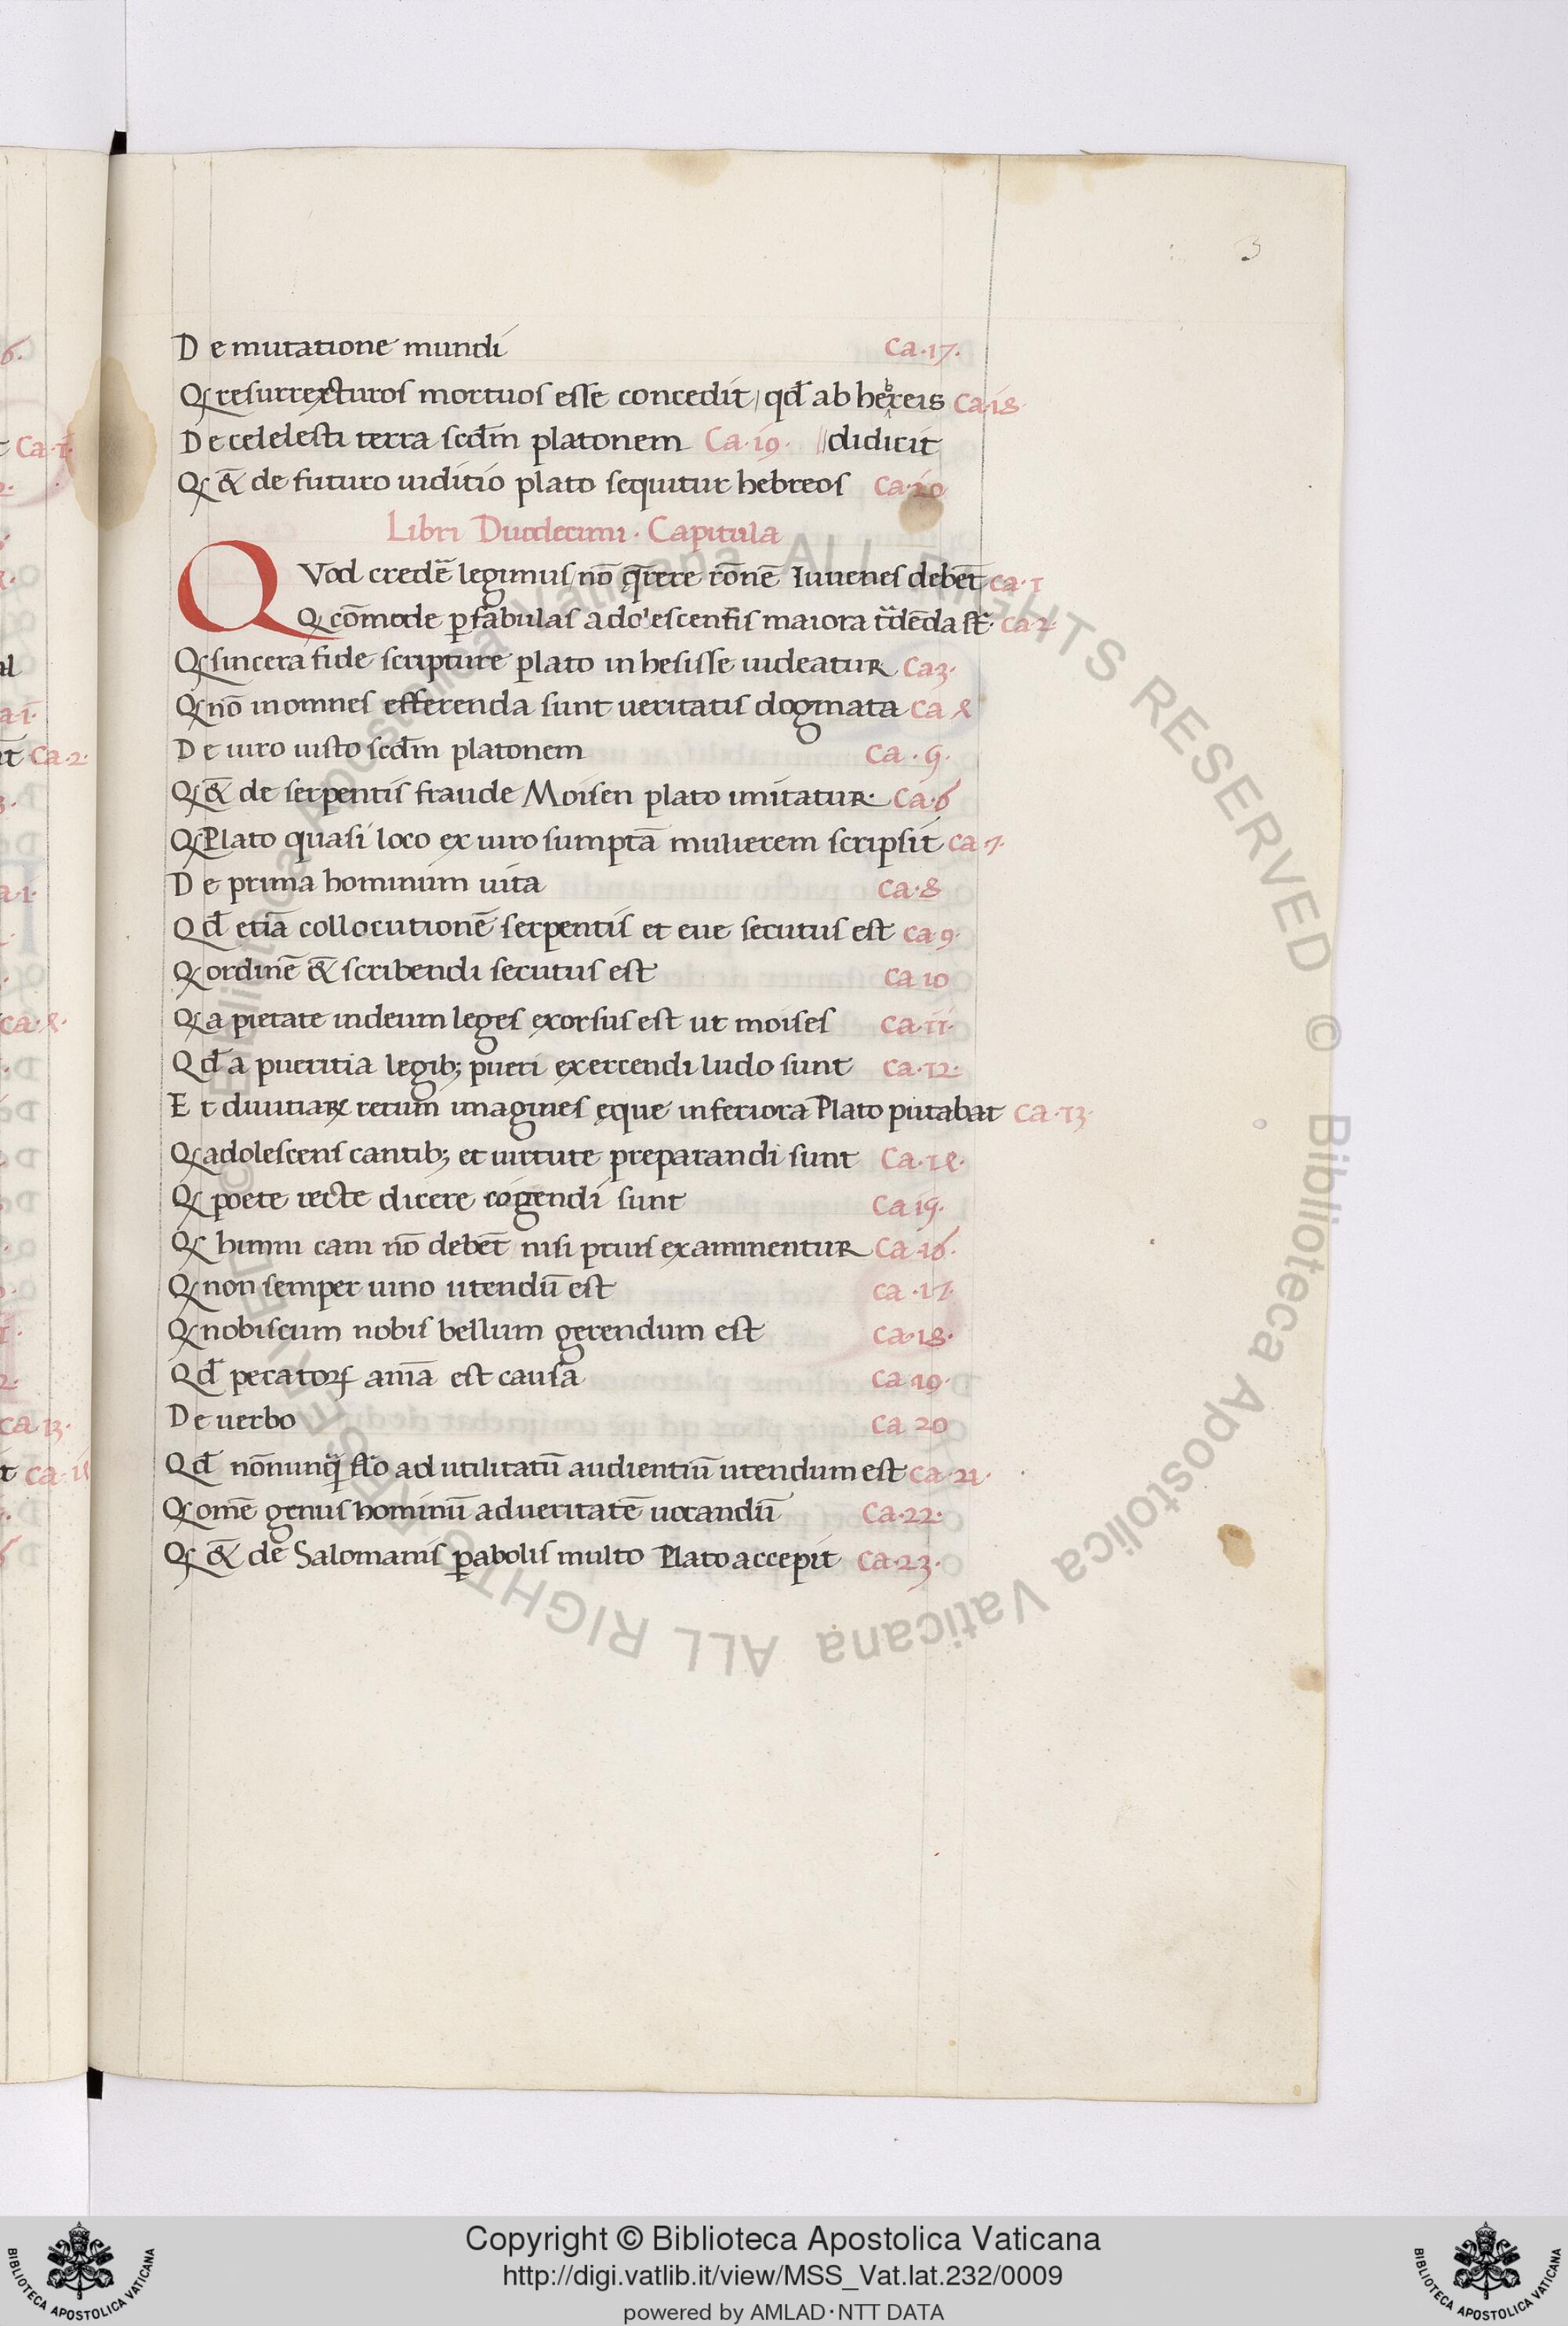 3
De mutatione mundi Ca·17·
Qꝫ resurrexcturos mortuos esse concedit / qđ ab hebreis Ca·18·
De celelesti terra scđm platonem Ca·19· //didicit
Qꝫ &̄ de futuro iuditio plato sequitur hebreos Ca·20
Libri Duodecimi· Capitula
QVod credē legimus / nō q̄rere rōnē Iuuenes debēt ca·1
Qꝫ cōmode ꝑ fabulas adolescentis maiora tͣdēda st̄· Ca·2·
Qꝫ sincera fide scripture plato inhesisse uideatur Ca3·
Qꝫ nō inomnes efferenda sunt ueritatis dogmata Ca 4
De uiro iusto scđm platonem Ca·5·
Qꝫ &̄ de serpentis fraude Moisen plato imitatur· Ca·6
Qꝫ Plato quasi loco ex uiro sumptā mulierem scripsit Ca 7·
De prima hominum uita Ca·8
Qđ etiā collocutionē serpentis et eue secutus est Ca 9·
Qꝫ ordinē &̄ scribendi secutus est Ca 10
Qꝫ a pietate indeum leges exorsus est ut moises Ca·11·
Qđ a pueritia legib; pueri exercendi ludo sunt Ca·12·
Et diuitiaꝝ rerum imagines ęque inferiora Plato putabat Ca·13·
Qꝫ adolescens cantib; et uirtute preparandi sunt Ca·14·
Qꝫ poete recte dicere cogendi sunt Ca 15·
Qꝫ himni cani nō debēt nisi prius examinentur Ca·16·
Qꝫ non semper uino utendū est Ca·17·
Qꝫ nobiscum nobis bellum gerendum est Ca·18·
Qđ peccatoꝝ aīa est causa Ca 19·
De uerbo Ca 20
Qđ nōnunq̄ ad utilitatū audientiū utendum est Ca·21·
Qꝫ omē genus hominū aduertitatē uocandū Ca·22·
Qꝫ &̄ de Salomanis ꝑabolis multo Plato accepit Ca·23·
Copyright © Biblioteca Apostolica Vaticana
http://digi.vatlib.it/view/MSS_Vat.lat.232/0009
powered by AMLAD·NTT DATA